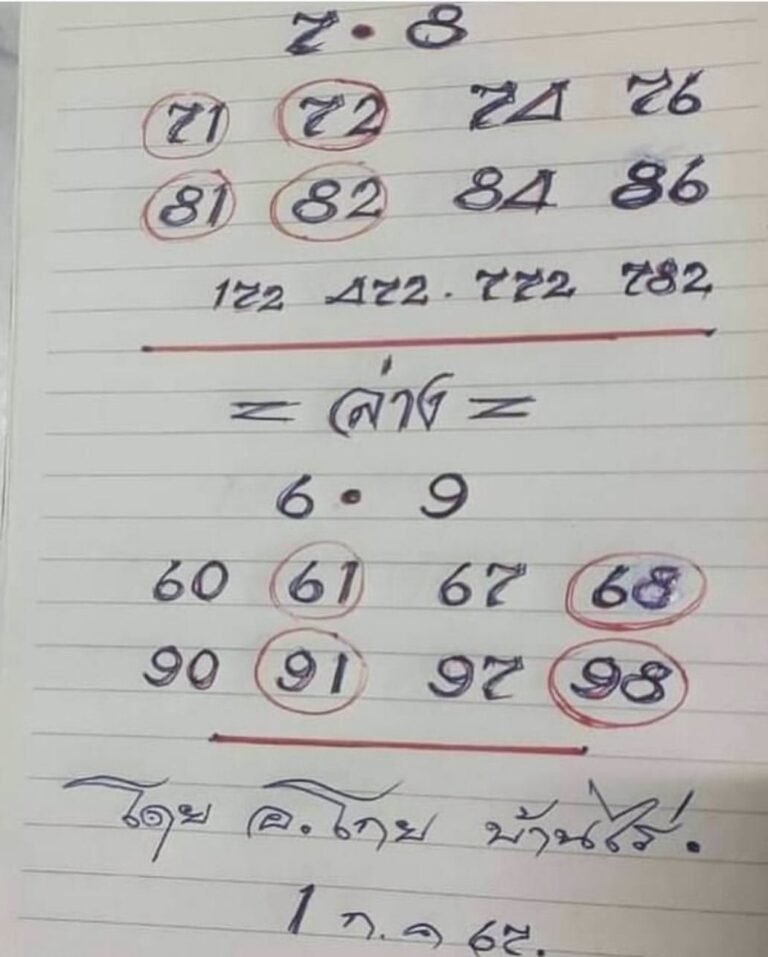 7 • 8
71 72 74 76
81 82 84 86
172 472 . 772 782
= ล่าง =
6 • 9
60 61 67 68
90 91 97 98
โดย อ.โกย บ้านไร่.
1 ก.ค 67.